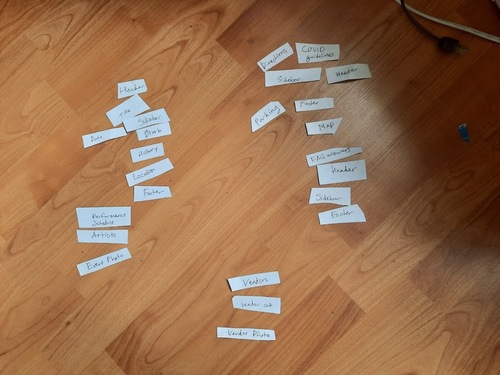 Header
Title
Sidebar
Blurb
History
Location
Footer
Performance
Schedule
Artists
Event Photo
Directions
COVID
guidelines
Sidebar
Header
Parking
Footer
Map
FAQ answers
Header
Sidebar
Footer
Vendors
Vendor Photo